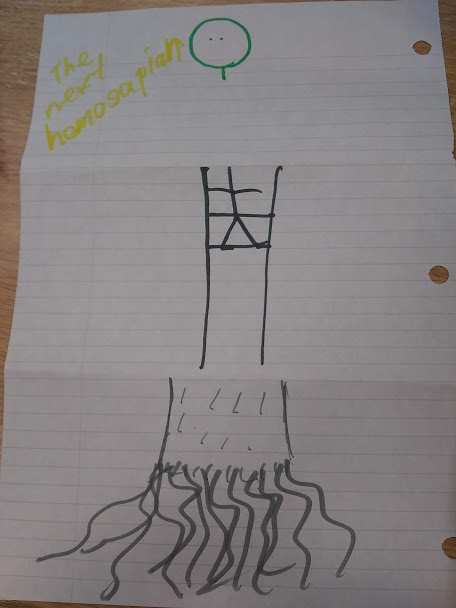 The
next
homosapian